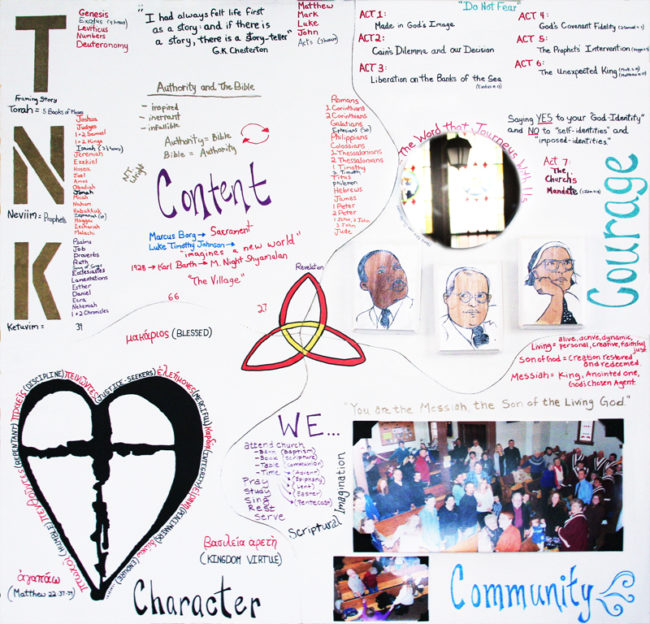 T
N
K
Genesis
Exodus (Show)
Leviticus
Numbers
Deuteronomy
Framing Story
Torah = 5 Books of Moses
Joshua
Judges
1 + 2 Samuel
1 + 2 Kings
Isaiah
Jeremiah
Ezekiel
Hosea
Joel
Amos
Obadiah
Jonah
Micah
Nahum
Habakkuk
Haggai
Zechariah
Malachi
Neviim = Prophets
Psalms
Job
Proverbs
Ruth
Song of Songs
Ecclesiastes
Lamentations
Esther
Daniel
Ezra
Nehemiah
1 + 2 Chronicles
Ketuvim =
39
"I had always felt life first
as a story: and if there is
a story, there is a story-teller"
G.K Chesterton
Authority and The Bible
- inspired
- inerrant
- infallible
Authority = Bible
Bible = Authority
N.T. Wright
Content
Marcus Borg → Sacrament
Luke Timothy Johnson →
"imagines a new world"
1928 → Karl Barth → M. Night Shyamalan
"The Village"
66
27
Matthew
Mark
Luke
John
Acts (Show)
Romans
1 Corinthians
2 Corinthians
Galatians
Ephesians
Philippians
Colossians
1 Thessalonians
2 Thessalonians
1 Timothy
2 Timothy
Titus
Philemon
Hebrews
James
1 Peter
2 Peter
1 John, 2 John
3 John
Jude
Revelation
"Do Not Fear"
ACT 1:
Made in God's Image
ACT 2:
Cain's Dilemma and our Decision
ACT 3:
Liberation on the Banks of the Sea
ACT 4:
God's Covenant Fidelity
ACT 5:
The Prophets' Intervention
ACT 6:
The Unexpected King
Saying YES to your "God-Identity"
and NO to "self-identities" and
"imposed-identities"
Act 7:
The
Church's
Mandate
The Word that Journeys With Us
Courage
alive, active, dynamic,
Living = personal, creative, faithful,
just
Son of God = Creation restored
and redeemed.
Messiah = King, Anointed one,
God's Chosen Agent
"You are the Messiah, the Son of the Living God."
Community
μακάριος (BLESSED)
(DISCIPLINE)
(JUSTICE-SEEKERS)
ἐλεήμονες (MERCIFUL)
(PEACEMAKERS)
(HUMBLE)
ἀγαπάω
(Matthew 22:37-39)
Character
βασιλεία ἀρετή
(KINGDOM VIRTUE)
WE...
attend church
- Born (Baptism)
- Book (Scripture)
- Table (Communion)
- Time → (Advent)
(Epiphany)
(Lent)
(Easter)
(Pentecost)
Pray
Study
Sing
Rest
Serve
Scriptural Imagination